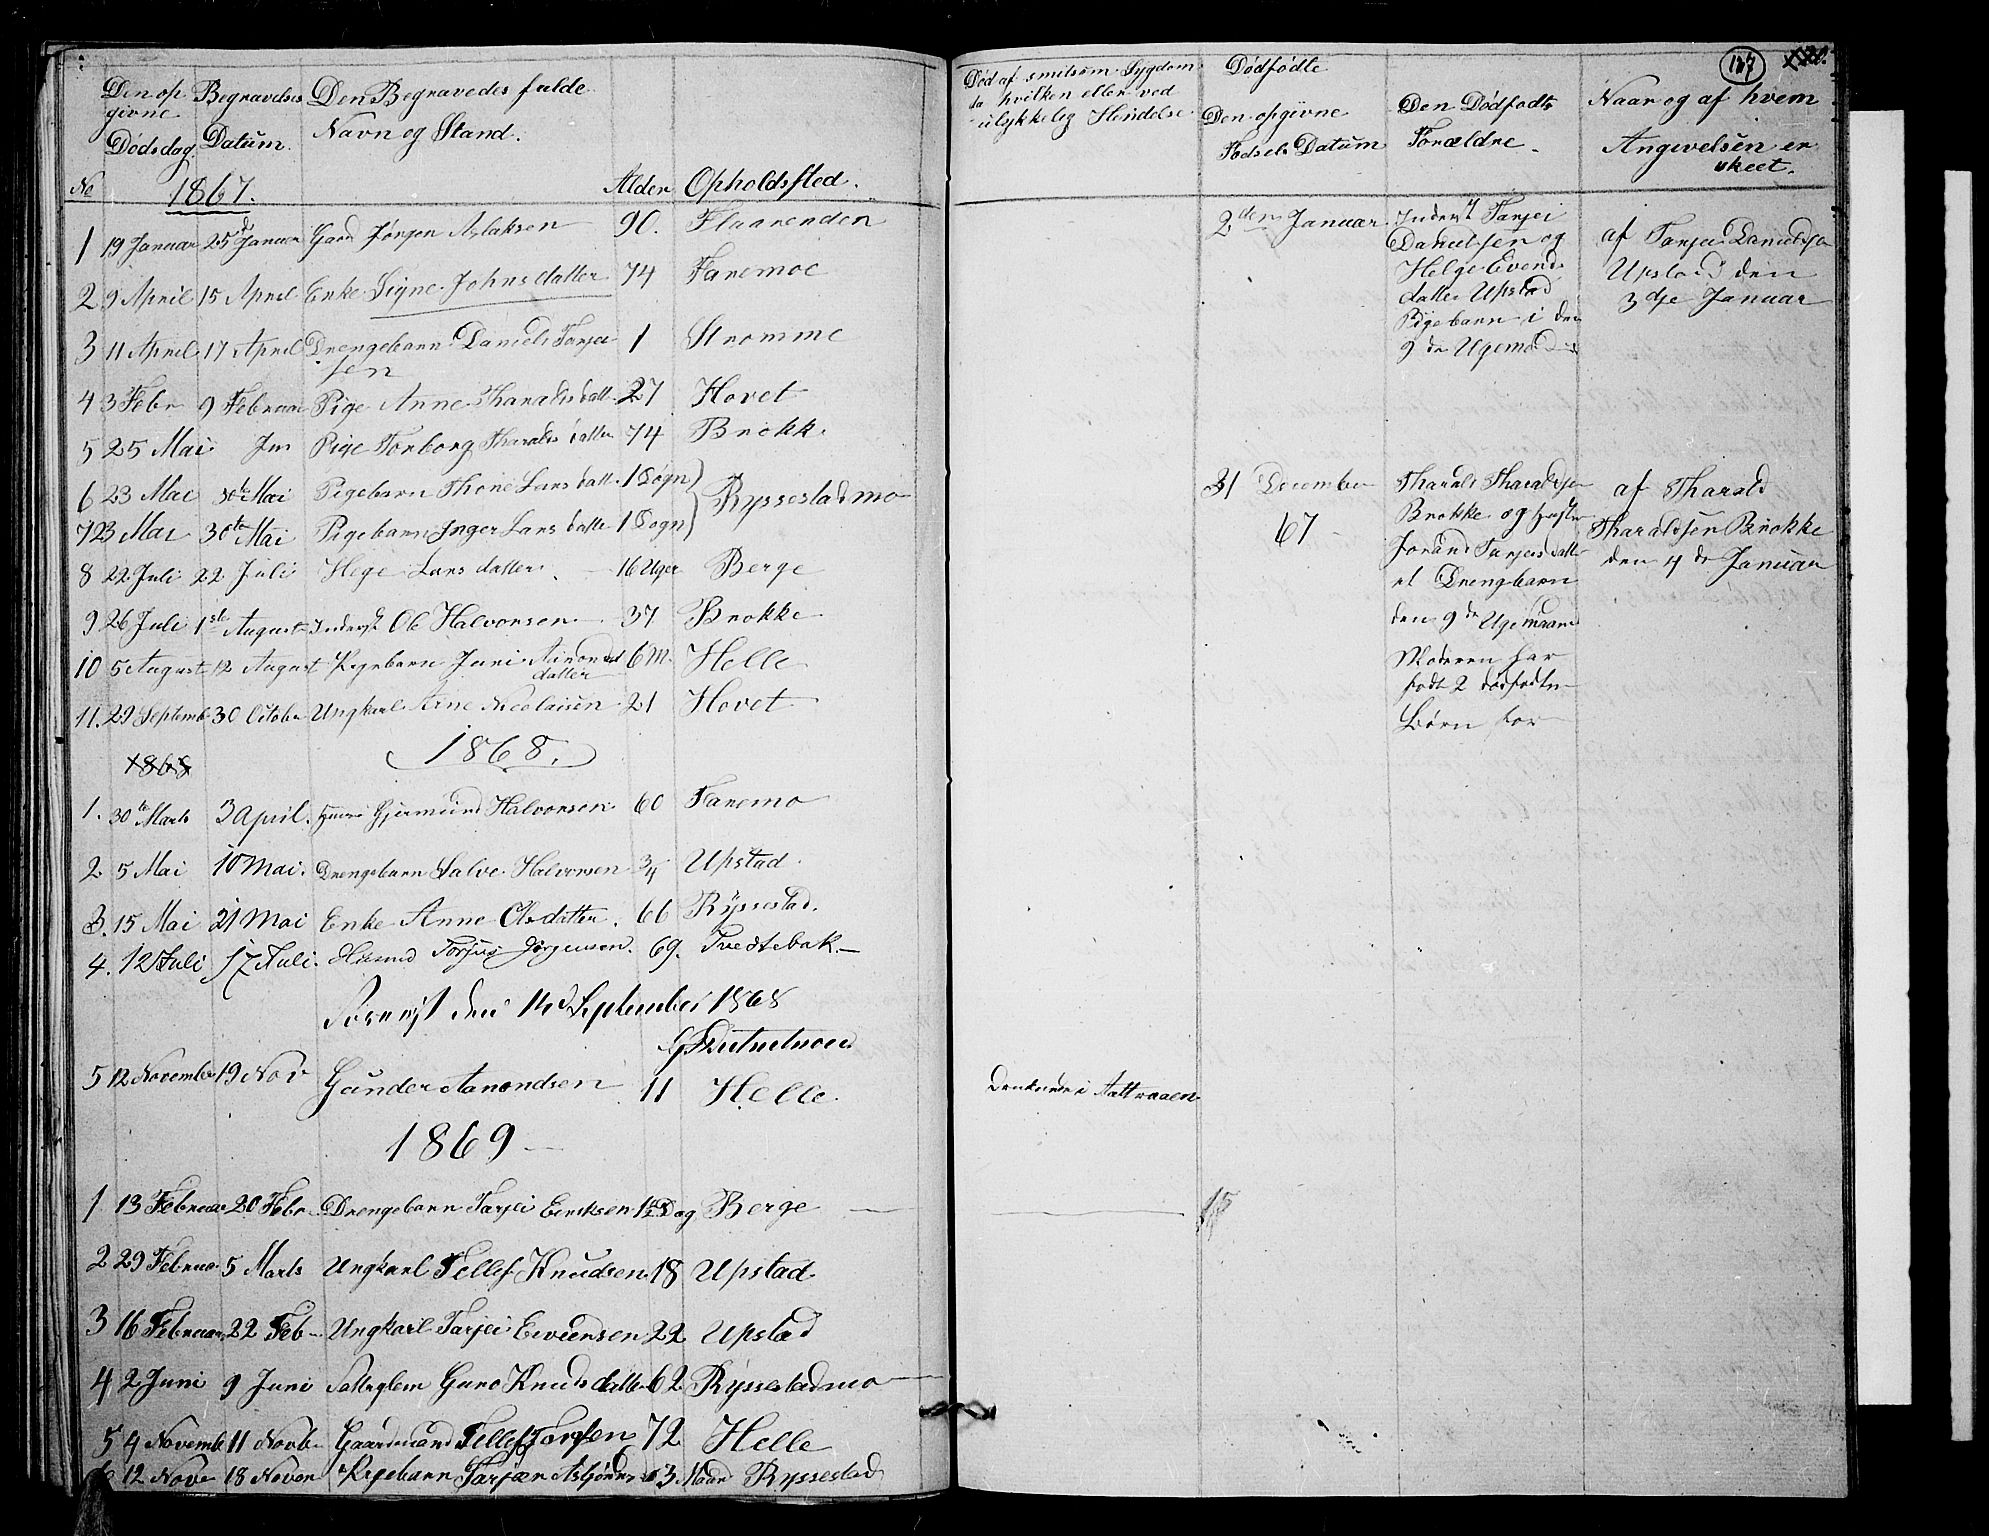 Den op Begravelses Den Begravedes fulde
givne Datum. Navn og Stand.
Dødsdag.
No 1867. Alder Opholdssted.
1 19 Januar 25 Januar Jørgen Aslaksen 90. Flaarenden
2 9 April 15 April Enke Signe Johnsdatter 74 Faremoe
3 11 April 17 April Drengebarn Daniel Tarjei 1 Stromme
sen
4 3 Febr 9 Februar Pige Anne Tharaldsdatt 27 Hovet
5 25 Mai Jun Pige Torborg Tharaldsdatter 74 Brokk.
6 23 Mai 30te Mai Pigebarn Thone Larsdatt 1 Døgn
7 23 Mai 30te Mai Pigebarn Inger Larsdatte 1 Døgn Ryssestadmo
8 22 Juli 22 Juli Hege Larsdatter 16 Uger Berge
9 26 Juli 1ste August Inderst Ole Halvorsen 37 Brokke
10 5 August 12 August Pigebarn Juni Aanonds 6 M. Helle
datter
11. 29 Septemb 30 Octobr Ungkarl Arne Nicolaisen 21 Hovet
1868.
1868
1. 30te Marts 3 April. Gjermund Halvorsen 60 Faremo
2 5 Mai 10 Mai. Drengebarn Salve Halvorsen 3/4 Upstad.
3. 15 Mai 21 Mai Enke Anne Olsdatter. 66 Ryssestad.
4. 12 Juli 17 Juli. Husmd Torjus Jørgensen. 69. Tveitebak.
Forevist den 14d September 1868
5 12 November 19 Nov Gunder Aanondsen 11 Helle.
1869
1 13 Februar 20 Febr Drengebarn Tarjei Eeriksen 1 Dag Berge
2 29 Februar 5 Marts Ungkarl Tellef Knudsen 18 Upstad
3 16 Februar 22 Feb Ungkarl Tarjei Evensen 22 Upstad
4 2 Juni 9 Juni Guro Knudsdatte 62 Ryssestadmo
5 4 Novemb 11 Novb Gaardmand Tellef Torjsen 72 Helle
6 12 Nove 18 Noven Pigebarn Tarjær 3 Maan Ryssestad
127
Død af smitsom Sygdom
da hvilken eller ved
ulykkelig Hendelse.
Dødfødte
Den opgivne
Fødsels Datum
Den Dødfødts
Forældre.
Naar og af hvem
Angivelsen er
skeet.
2den Januar
Inderst Tarjei
Danielsen og
Helge Evends
datter Upstad
Pigebarn i den
9de Ugemd
af Tarjei Danielsen
Upstad den
3dje Januar
31 December
67
Tharald Tharaldsen
Brokke og Hustru
Jorand Tarjeisdatte
et Drengbarn
den 9de Ugemaan
Moderen har
født 2 dødfødte
Børn for
af Tharald
Tharaldsen Brokke
den 4de Januar
Druknede i Aattraaen